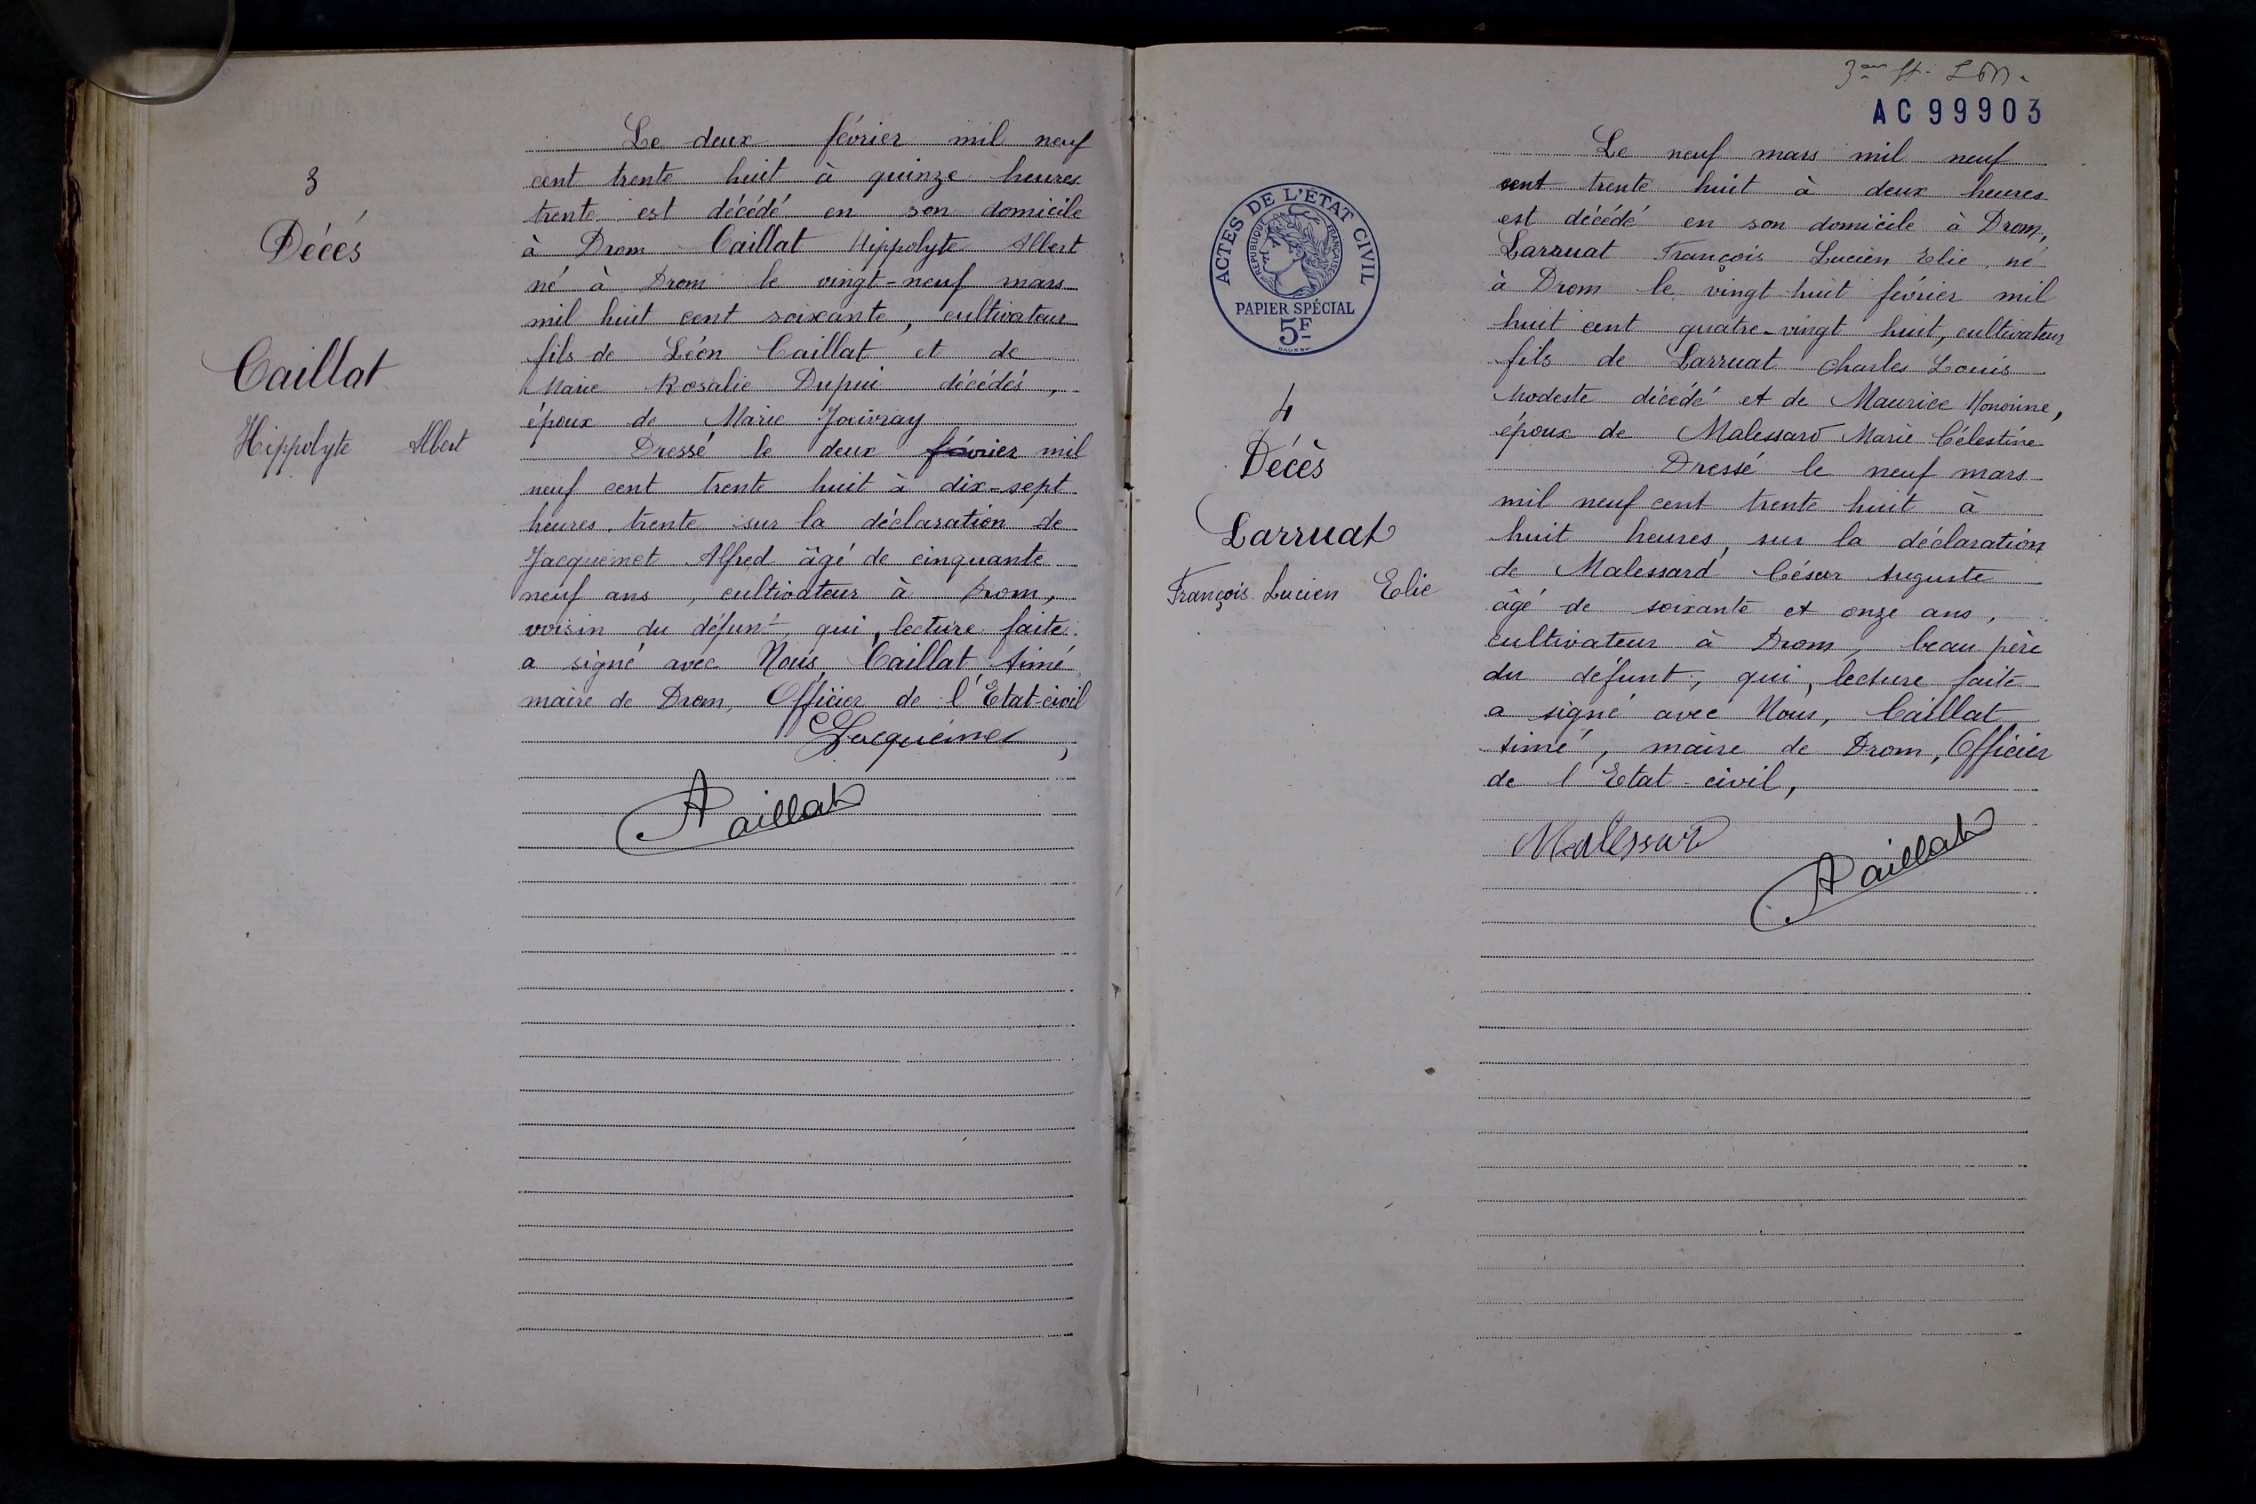 3
Décés
Caillat
Hippolyte Albert
Le deux février mil neuf
cent trente huit à quinze heures
trente est décédé en son domicile
à Drom Caillat Hippolyte Albert
né à Drom le vingt-neuf mars
mil huit cent soixante, cultivateur
fils de Léon Caillat et de
Marie Rosalie Dupui décédés,
époux de Marie Jouvray
Dressé le deux février mil
neuf cent trente huit à dix-sept
heures trente sur la déclaration de
Jacquemet Alfred âgé de cinquante
neuf ans, cultivateur à Drom,
voisin du défunt, qui, lecture faite
a signé avec Nous, Caillat Aimé
maire de Drom, Officier de l'Etat-civil
Jacquemet
A Caillat
AC 99903
ACTES DE L'ÉTAT CIVIL
RÉPUBLIQUE FRANÇAISE
PAPIER SPÉCIAL
5F
4
Décès
Larruat
François Lucien Elie
Le neuf mars mil neuf
cent trente huit à deux heures
est décédé en son domicile à Drom,
Larruat François Lucien Elie, né
à Drom le vingt huit février mil
huit cent quatre-vingt huit, cultivateur
fils de Larruat Charles Louis
Modeste décédé et de Maurice Honorine,
époux de Malessard Marie Célestine
Dressé le neuf mars
mil neuf cent trente huit à
huit heures, sur la déclaration
de Malessard César Auguste
âgé de soixante et onze ans,
cultivateur à Drom, beau père
du défunt, qui, lecture faite
a signé avec Nous, Caillat
Aimé, maire de Drom, Officier
de l'Etat-civil,
Malessard
A Caillat